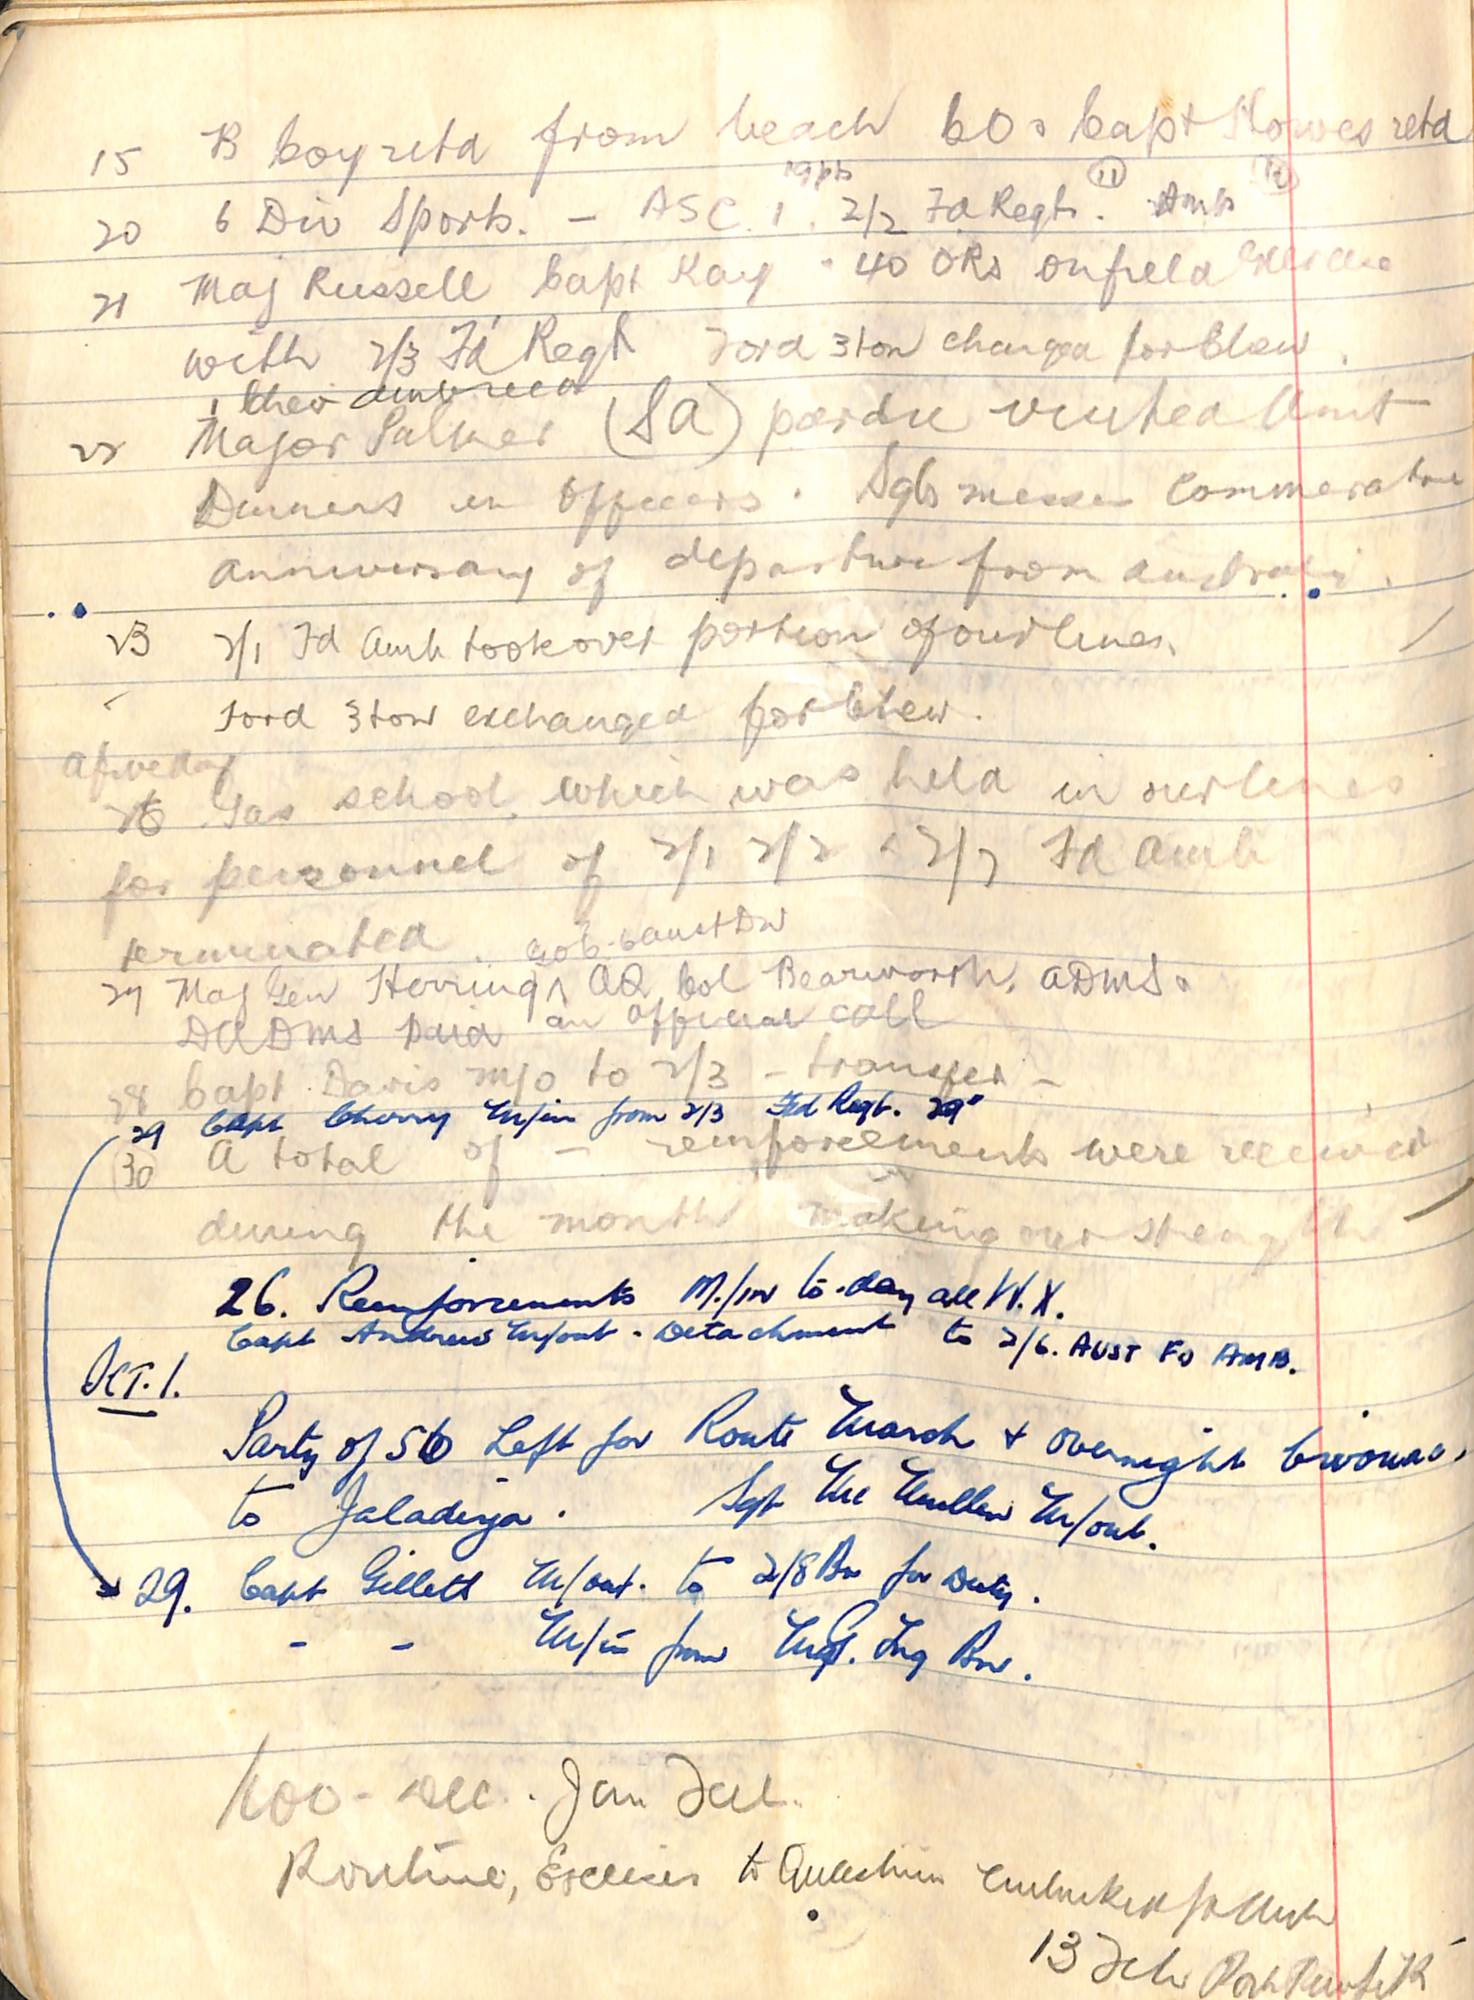 15 B Coy retd from beach CO & Capt Howes retd
19 pts (11) (10)
20 6 Div Sports. - ASC. 1. 2/2 Fd Regt. Amb
21 Maj Russell, Capt Kay & 40 ORs on field Exercise
with 2/3 Fd Regt Ford 3 ton changed for Chev.
22 Major Palmer (SA) padre visited Unit
Dinners in Officers & Sgts messes Commemorative
anniversary of departure from Australia.
23 2/1 Fd Amb took over portion of our lines.
Ford 3 ton exchanged for Chev.
A five day
26 Gas school, which was held in our lines
for personnel of 2/1 2/2 & 2/7 Fd Amb
terminated. GOC 6 Aust Div
27 Maj Gen Herring ^ AQ Col Bearworth, ADMS &
DADMS paid an official call
28 Capt Davis m/o to 2/3 - transfer -
29 Capt Cherry M/in from 2/3 Fd Regt. 29"
(30) A total of - reinforcements were received
during the month making our strength
26. Reinforcements M/in to-day all W.X.
Capt Andrews M/out - Detachment to 2/6. AUST FD AMB.
OCT. 1.
Party of 50 Left for Route March + overnight bivouac.
to Jaladiya. Sgt McMullen M/out.
29. Capt Gillett M/out. to 2/8 Bn for Duty.
- - M/in from Trg Bn.
Nov - Dec. Jan Feb.
Routine, Exercises to Palestine embarked for Aust
13 Feb Port Tewfik